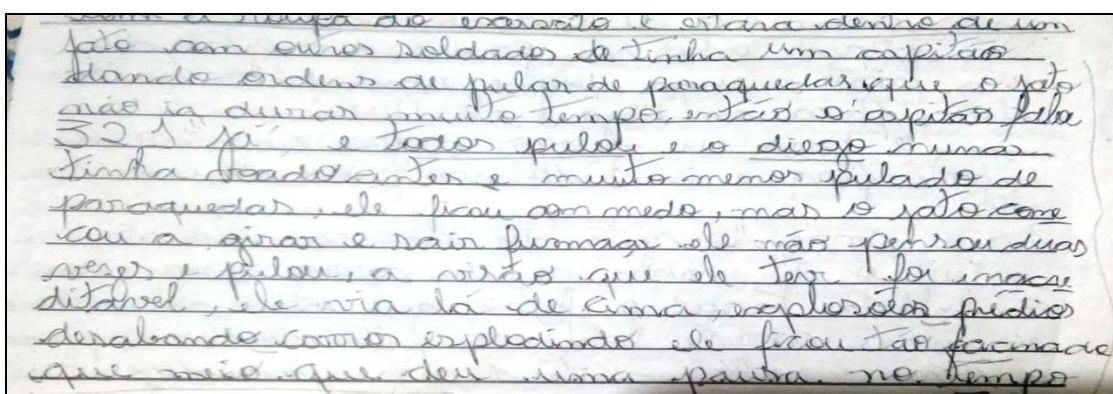 com a roupa do exercito e estava dentro de um
jato com outros soldados de tinha um capitão
dando ordens de pular de paraquedas que o jato
não ia durar muito tempo, então o capitão fala
3 2 1 já e todos pulou e o diego nunca
tinha voado antes e muito menos pulado de
paraquedas, ele ficou com medo, mas o jato come
cou a girar e sair fumaça ele não pensou duas
vezes e pulou, a visão que ele teve foi inacre
ditavel, ele via lá de cima, explosões prédios
desabando carros explodindo ele ficou tão facinado
que meio que deu uma pausa no tempo